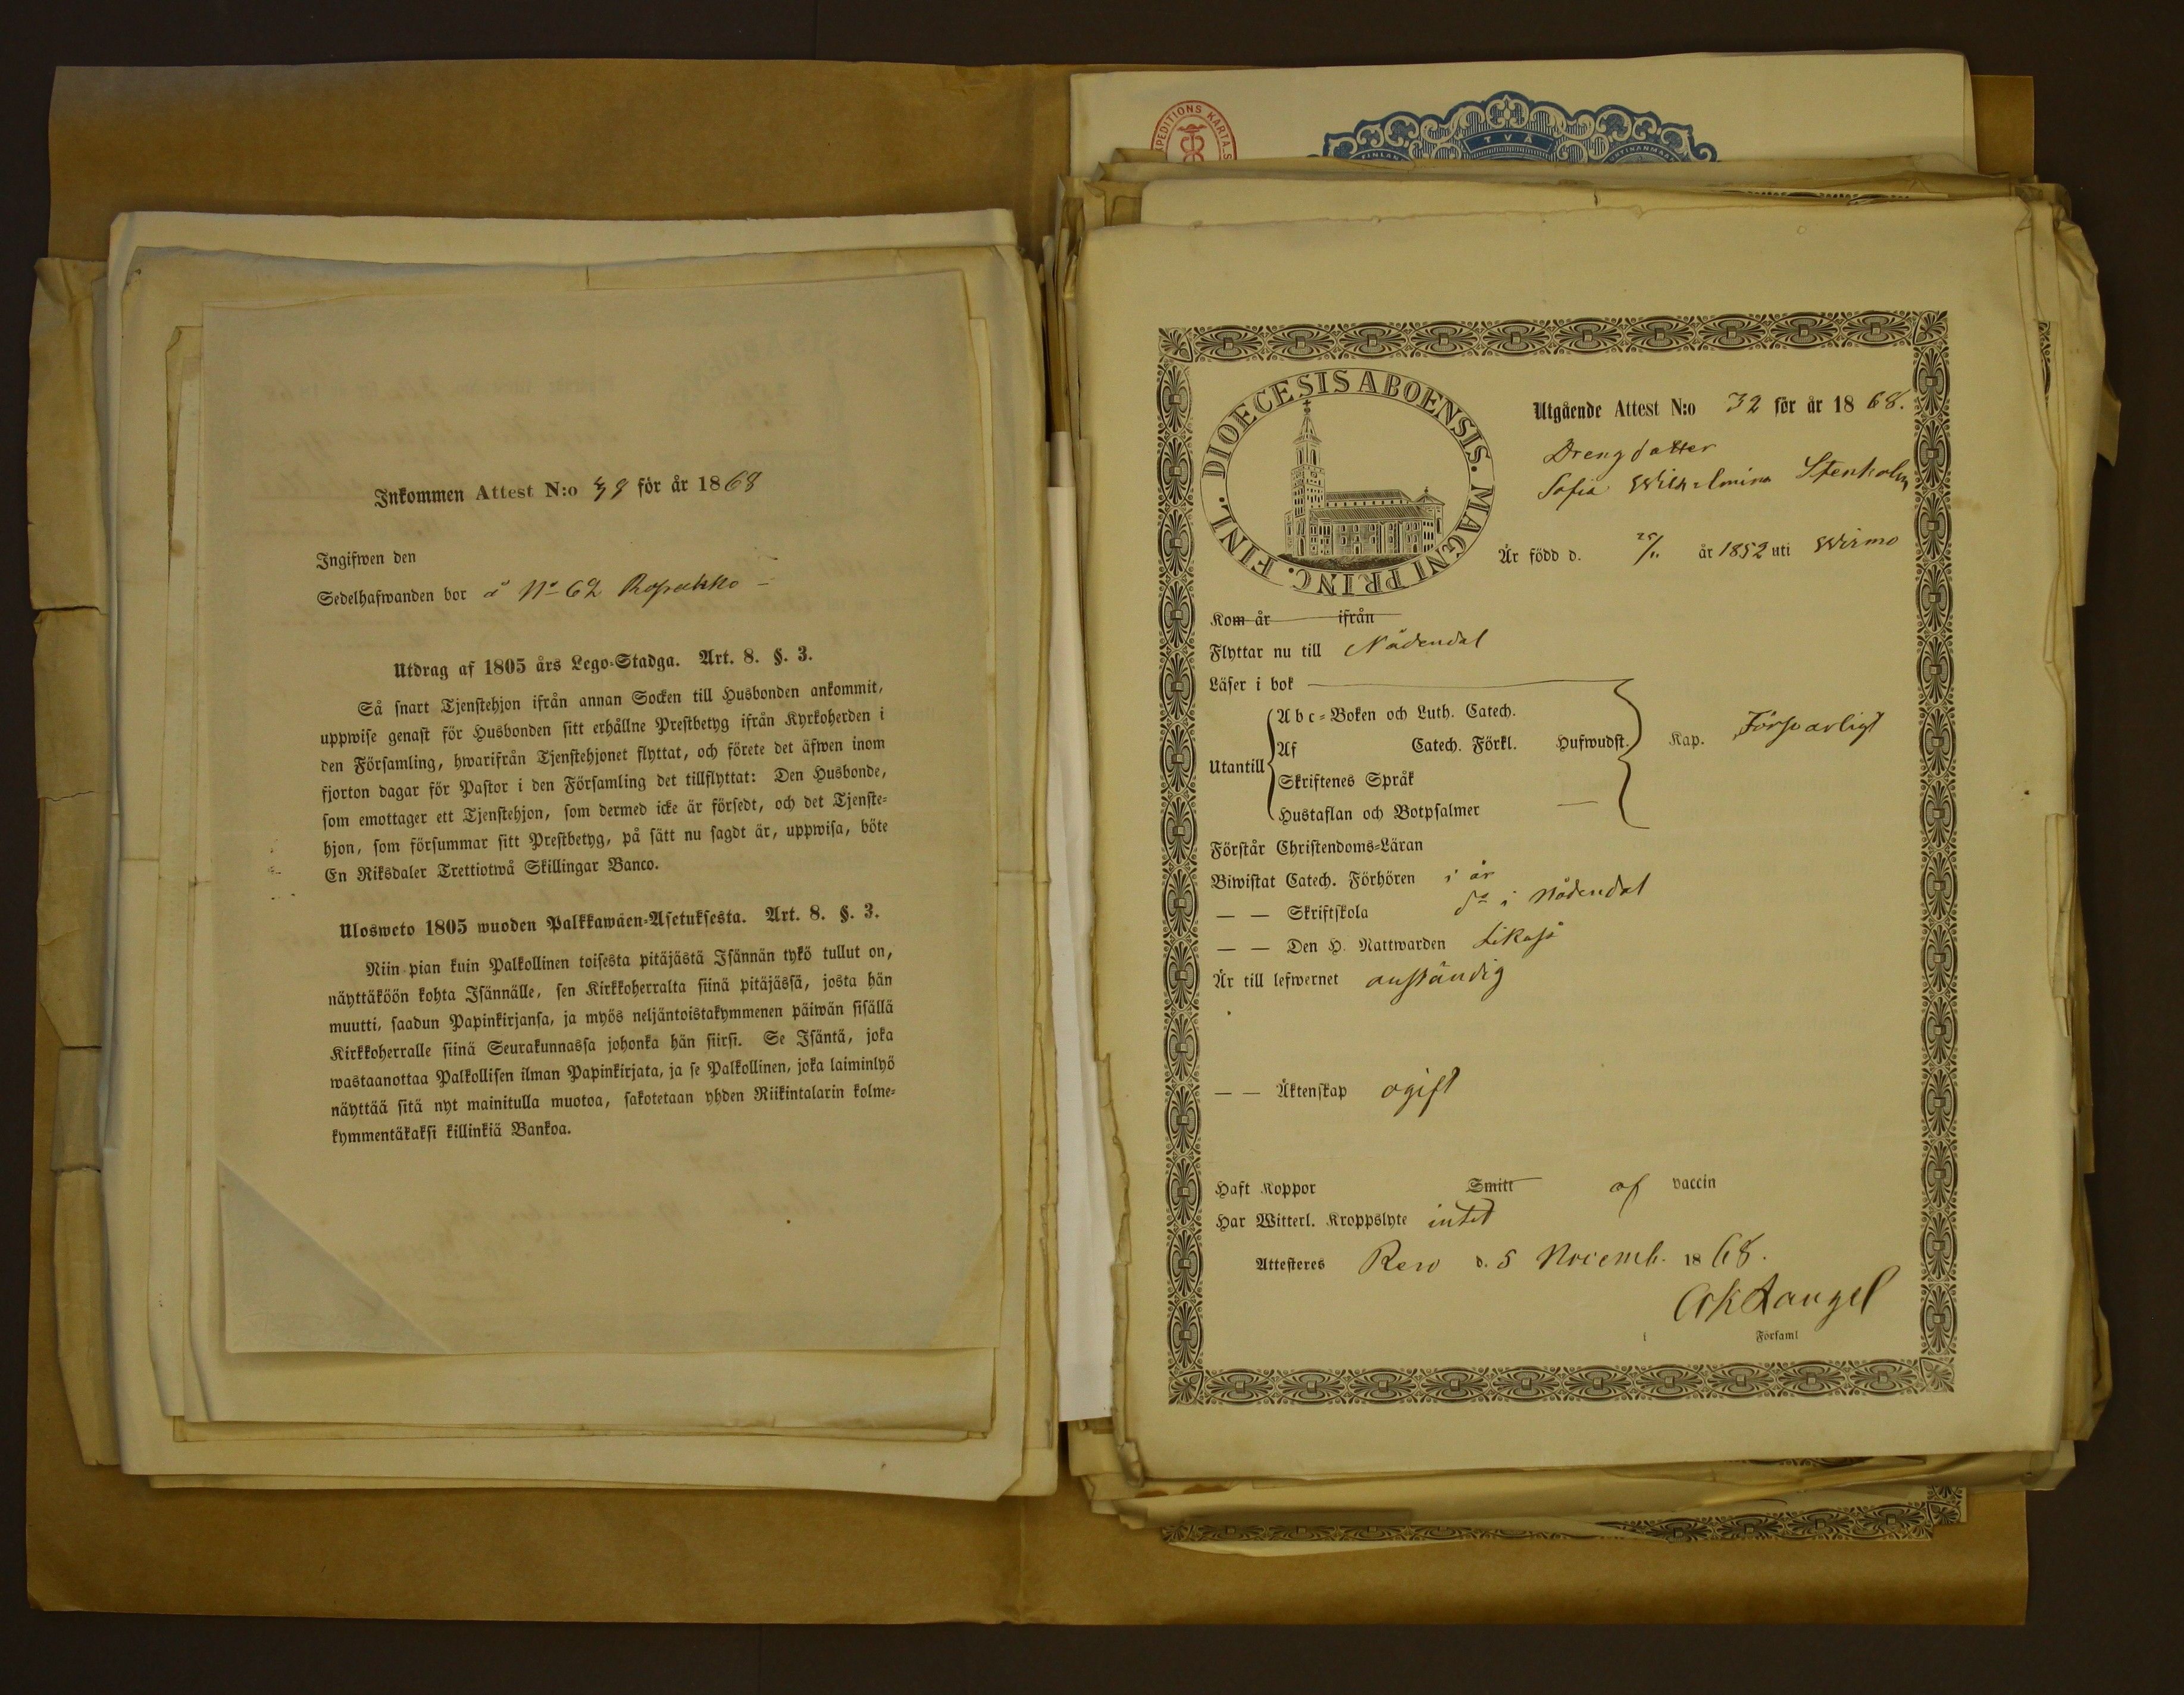 Inkommen Attest N:o 39 för år 1868
Ingifwen den
Sedelhafwanden bor å No 62
Utdrag af 1805 års Lego-Stadga. Art. 8. §. 3.
Så snart Tjenstehjon ifrån annan Socken till Husbonden ankommit,
uppwise genast för Husbonden sitt erhållne Prestbetyg ifrån Kyrkoherden i
den Församling, hwarifrån Tjenstehjonet flyttat, och förete det äfwen inom
fjorton dagar för Pastor i den Församling det tillflyttat: Den Husbonde,
som emottager ett Tjenstehjon, som dermed icke är försedt, och det Tjenste-
hjon, som försummar sitt Prestbetyg, på sätt nu sagdt är, uppwisa, böte
En Riksdaler Trettiotwå Skillingar Banco.
Ulosweto 1805 wuoden Palkkawäen-Asetuksesta. Art. 8. §. 3.
Niin pian kuin Palkollinen toisesta pitäjästä Isännän tykö tullut on,
näyttäköön kohta Isännälle, sen Kirkkoherralta siinä pitäjässä, josta hän
muutti, saadun Papinkirjansa, ja myös neljäntoistakymmenen päiwän sisällä
Kirkkoherralle siinä Seurakunnassa johonka hän siirsi. Se Isäntä, joka
wastaanottaa Palkollisen ilman Papinkirjata, ja se Palkollinen, joka laiminlyö
näyttää sitä nyt mainitulla muotoa, sakotetaan yhden Riikintalarin kolme-
kymmentäkaksi killinkiä Bankoa.
EXPEDITIONS KARTA.S
TVÅ
FINLAN
DIOECESIS ABOENSIS. MAGNI PRINC. FINL.
Utgående Attest N:o 32 för år 1868.
Drengdotter
Sofia Wilhelmina Stenholm
Är född d. år 1852 uti Wirmo
Kom år ifrån
Flyttar nu till Nådendal
Läser i bok
Utantill
Abc-Boken och Luth. Catech.
Af Catech. Förkl. Hufwudst. Kap. Försvarligt
Skriftenes Språk
Hustaflan och Botpsalmer
Förstår Christendoms-Läran
Biwistat Catech. Förhören i år
— — Skriftskola do i Nådendal
— — Den H. Nattwarden likaså
Är till lefwernet anständig
— — Äktenskap ogift
Haft Koppor Smitt af vaccin
Har Witterl. Kroppslyte intet
Attesteres Reso d. 5 Novemb. 1868.
Församl